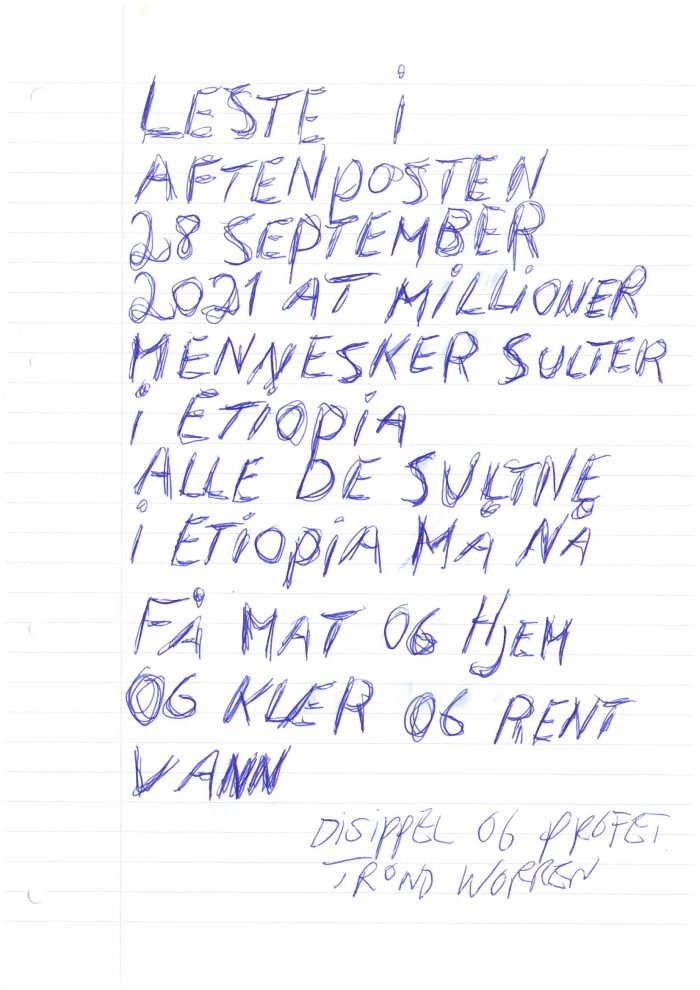 LESTE i
AFTENPOSTEN
28 SEPTEMBER
2021 AT MiLLiONER
MENNESKER SULTER
i ETiOPiA
ALLE DE SULTNE
i ETiOPiA MÅ NÅ
FÅ MAT OG HJEM
OG KLER OG RENT
VANN
DiSiPPEL OG PROFET
TROND WORREN